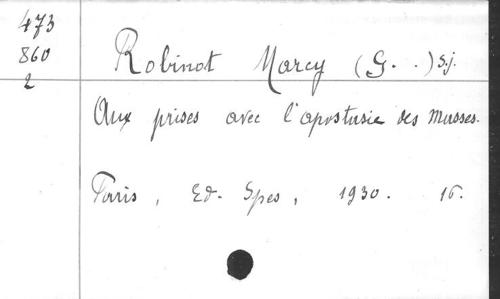 473
860
2
Robinot Marcy (G. .) S.j.
Aux prises avec l'apostasie des masses.
Paris, Ed. Spes, 1930. 16.